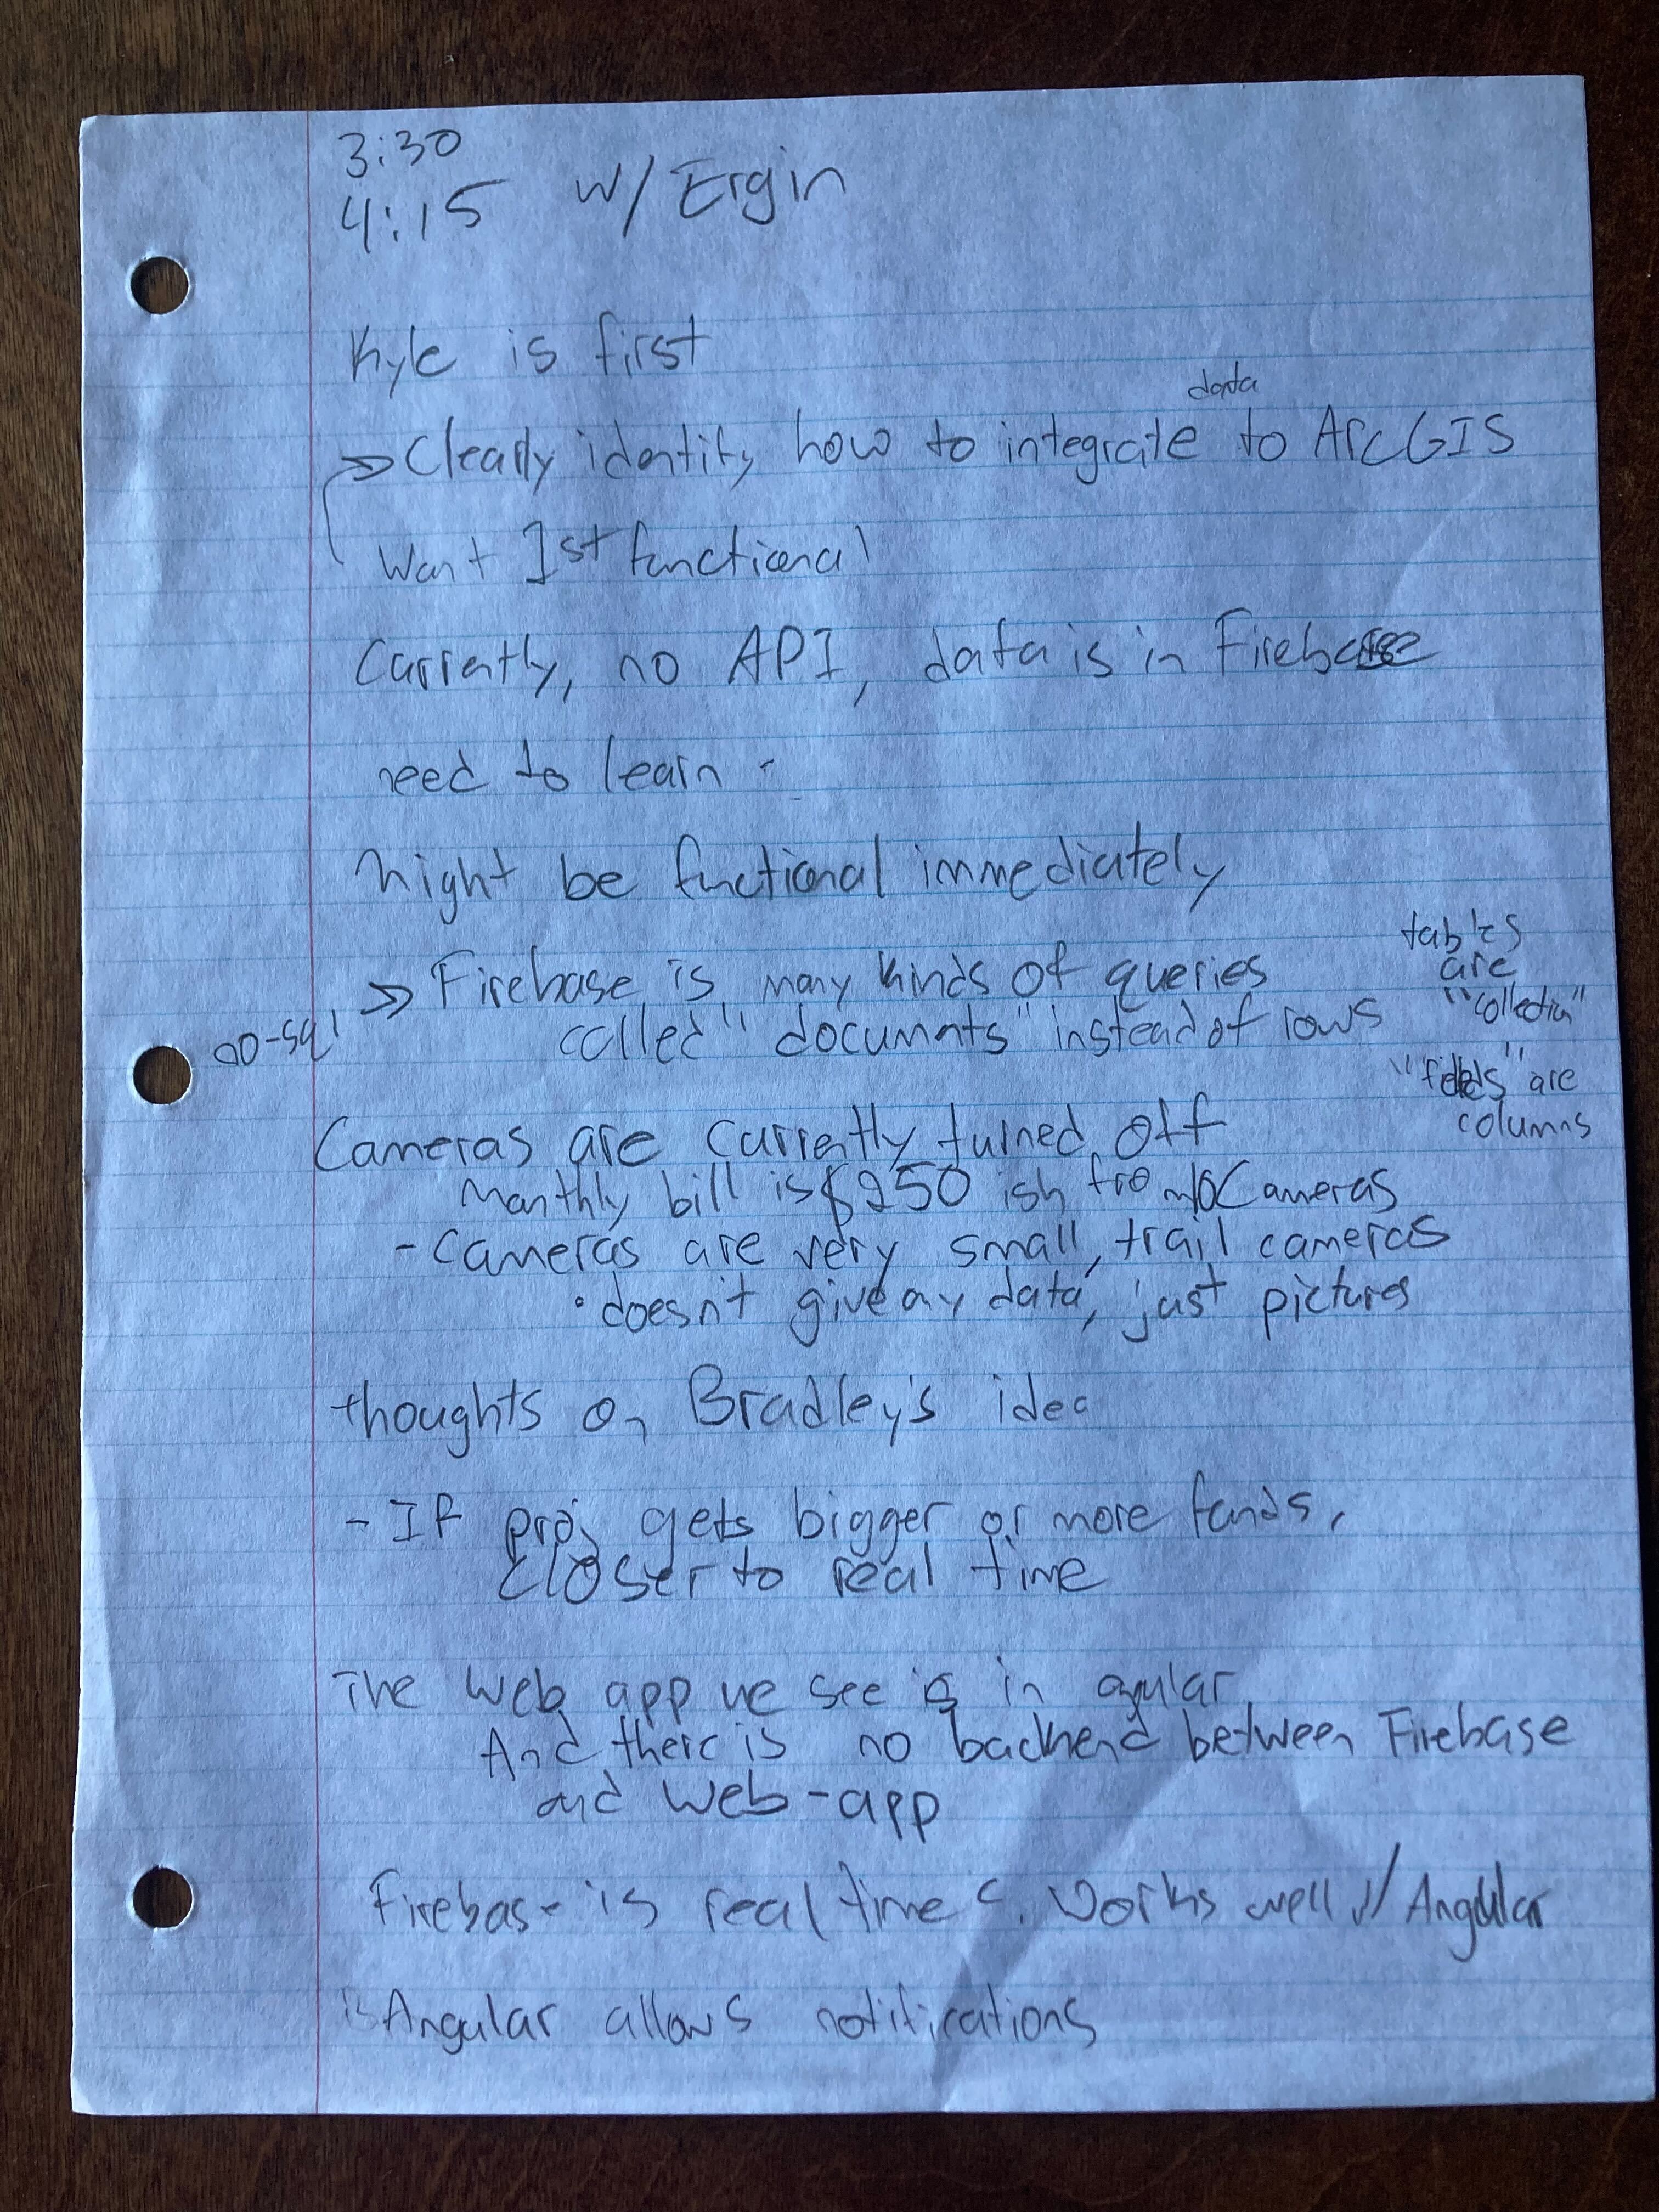 3:30
4:15 w/ Ergin
Kyle is first
data
→ Clearly identify how to integrate to ArcGIS
Want 1st functional
Currently, no API, data is in Firebase
need to learn -
might be functional immediately
→ Firebase is many kinds of queries
no-sql called "documents" instead of rows
tables
are
"collection"
"fields" are
columns
Cameras are currently turned off
Monthly bill is $250 ish from Cameras
- Cameras are very small, trail cameras
• doesn't give any data, just pictures
thoughts on Bradley's idea
- If proj gets bigger or more funds,
closer to real time
The web app we see is in agular
And there is no backend between Firebase
and web-app
Firebase is real time works well w/ Angular
Angular allows notifications